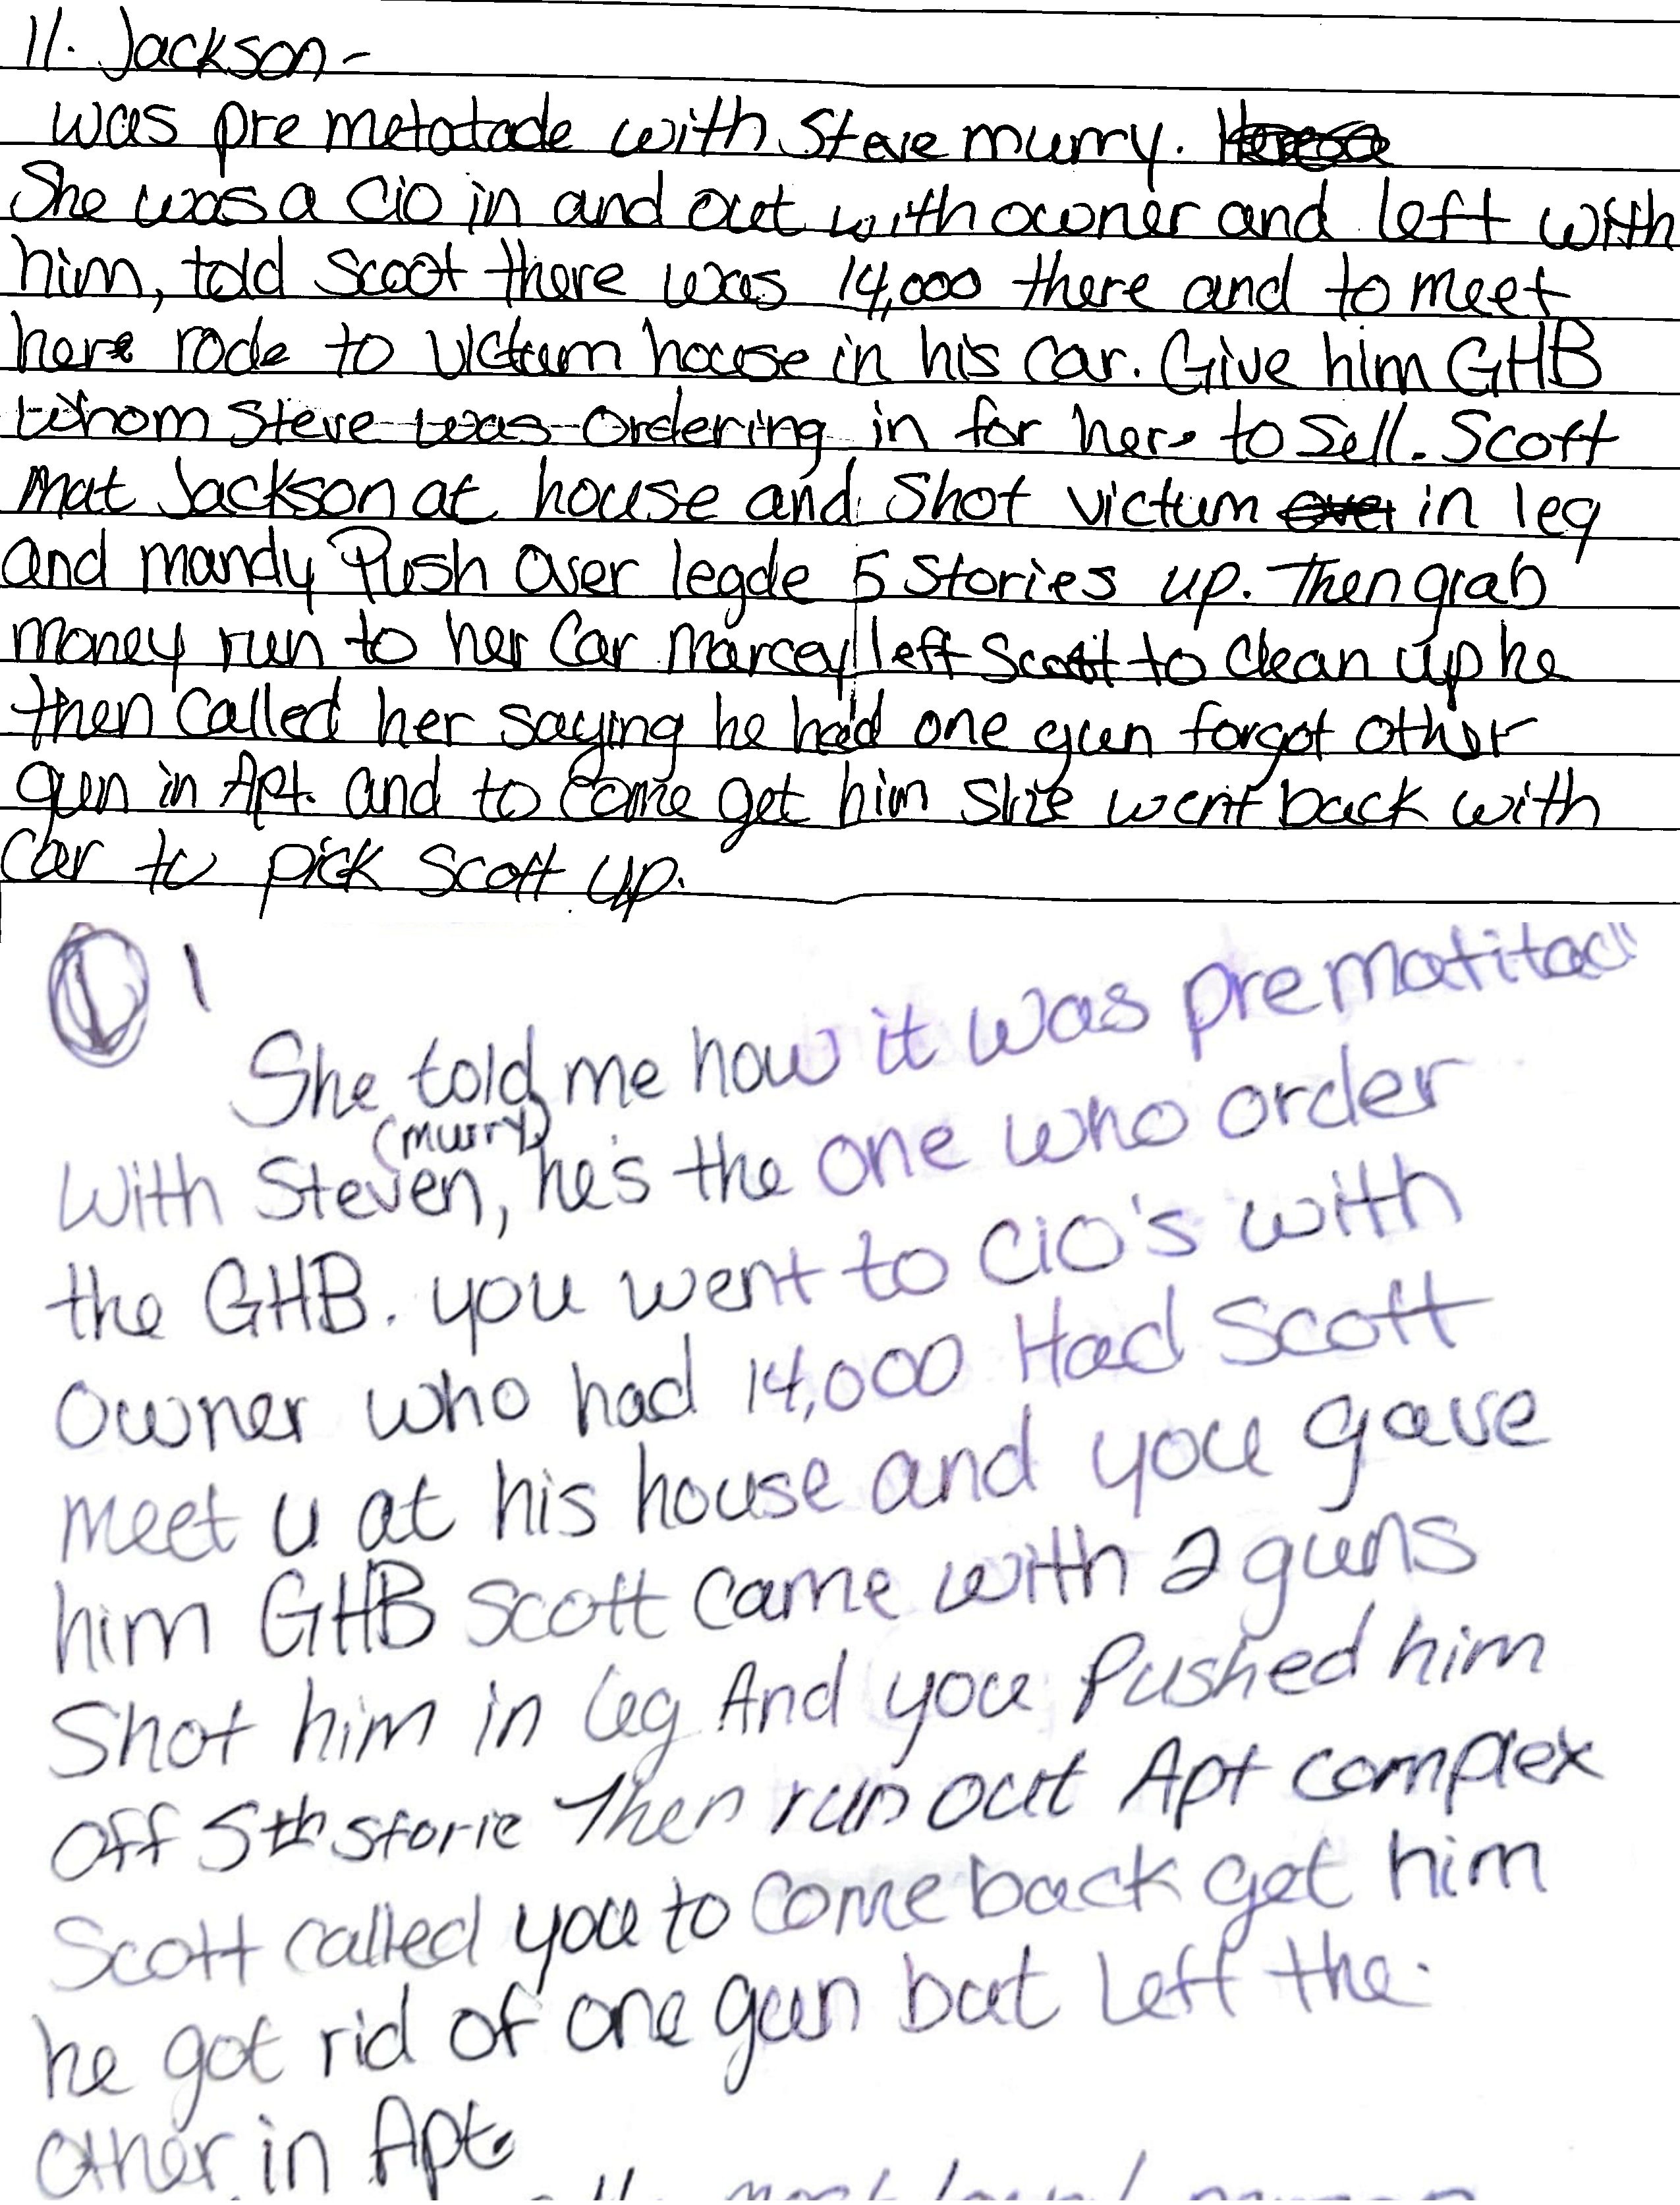 11. Jackson -
was pre metatade with Steve murry.
She was a Cio in and out with owner and left with
him, told Scoot there was 14,000 there and to meet
here rode to victum house in his car. Give him GHB
whom Steve was ordering in for here to Sell. Scott
mat Jackson at house and Shot victum over in leg
and mandy Push Over legde 5 Stories up. Then grab
money run to her Car Marcey left Scott to clean up he
then called her saying he had one gun forgot other
gun in Apt. and to come get him She went back with
Car to pick Scott up.
1
She told me how it was prematitad
(murry)
with Steven, he's the one who order
the GHB. you went to CiO's with
owner who had 14,000 Had Scott
meet u at his house and you gave
him GHB Scott came with 2 guns
Shot him in leg And you Pushed him
off 5th storie Then run out Apt complex
Scott called you to come back get him
he got rid of one gun but Left the
other in Apt.